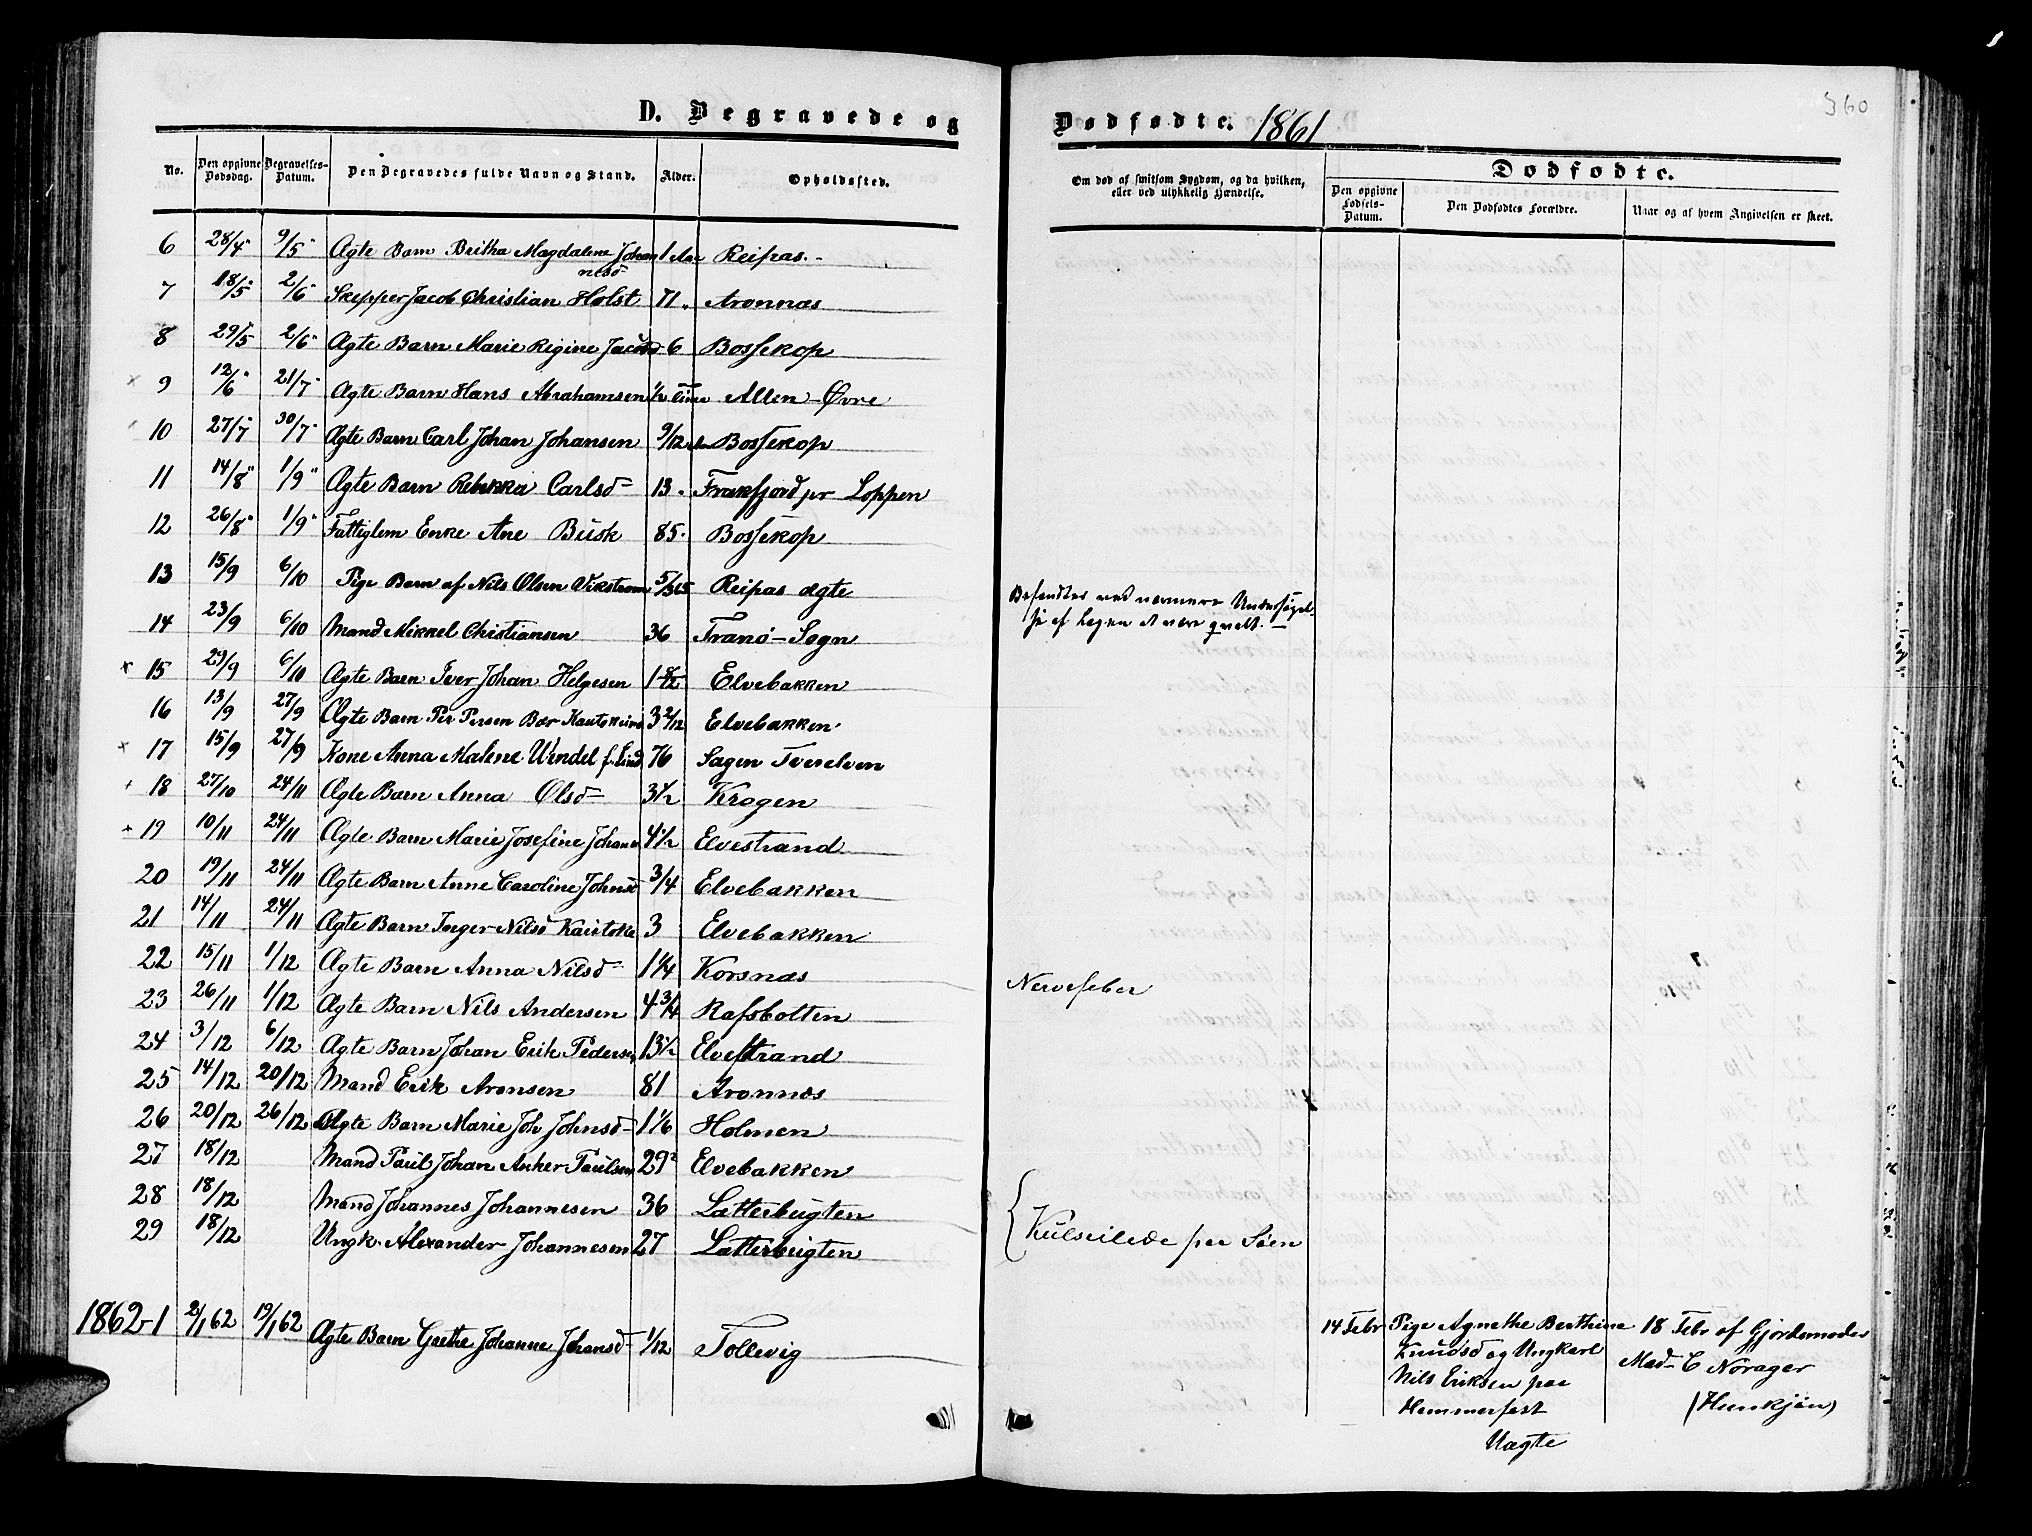 360
D. Begravede og Dødfødte. 1861
No.
Den opgivne Dødsdag.
Begravelses-Datum.
Den Begravedes fulde Navn og Stand.
Alder.
Opholdssted.
Om død af smitsom Sygdom, og da hvilken, eller ved ulykkelig Hændelse.
Dødfødte.
Den opgivne Fødsels-Datum.
Den Dødfødtes Forældre.
Naar og af hvem Angivelsen er skeet.
6 28/4 9/5 Ægte Barn Britha Magdalene Johannesd 1 Aar Reipas.
7 18/5 2/6 Skipper Jacob Christian Holst 71 Aronnæs
8 29/5 2/6 Ægte Barn Marie Regine Jacobsd 6 Bossekop
9 12/6 21/7 Ægte Barn Hans Abrahamsen 1/2 Time Allen-Øvre
10 27/7 30/7 Ægte Barn Carl Johan Johansen 9/12 Bossekop
11 14/8 1/9 Ægte Barn Rebekka Carlsd 13 Frakfjord pr Loppen
12 26/8 1/9 Fattiglem Enke Ane Busk 85 Bossekop
13 15/9 6/10 Pige Barn af Nils Olsen Vikstrom 5/365 Reipas ægte Befandtes ved nærmere Undersøgel-
14 23/9 6/10 Mand Mikkel Christiansen 36 Tranø-Sogn se af Lægen at være qvalt.
15 29/9 6/10 Ægte Barn Iver Johan Helgesen 1 8/12 Elvebakken
16 13/9 27/9 Ægte Barn Per Persen Bær Kautokeino 3 2/12 Elvebakken
17 15/9 27/9 Kone Anna Malene Wendel f. Lind 76 Sagen Tverelven
18 27/10 24/11 Ægte Barn Anna Olsd 3 1/2 Krogen
19 10/11 24/11 Ægte Barn Marie Josefine Johans 4 1/2 Elvestrand
20 19/11 24/11 Ægte Barn Anne Caroline Johnsd 3/4 Elvebakken
21 14/11 24/11 Ægte Barn Inger Nilsd Kautoke 3 Elvebakken
22 15/11 1/12 Ægte Barn Anna Nilsd 1 1/4 Korsnæs
23 26/11 1/12 Ægte Barn Nils Andersen 4 3/4 Rafsbotten Nervefeber
24 3/12 6/12 Ægte Barn Johan Erik Pedersen 13 1/2 Elvestrand
25 14/12 20/12 Mand Erik Aronsen 81 Aronnæs
26 20/12 26/12 Ægte Barn Marie Joh Johnsd 1 1/6 Holmen
27 18/12 Mand Paul Johan Anker Paulsen 29 Elvebakken
28 18/12 Mand Johannes Johannesen 36 Latterbugten
29 18/12 Ungk. Alexander Johannesen 27 Latterbugten Kulseilede paa Søen
1862-1 2/1 62 19/1 62 Ægte Barn Grethe Johanne Johansd 1/12 Tollevig
14 Febr Pige Agnethe Berthine
Knudsd og Ungkarl
Nils Eriksen paa
Hammerfest
Uægte
18 Febr af Gjordemoder
Mad- C Norager
(Hunkjøn)